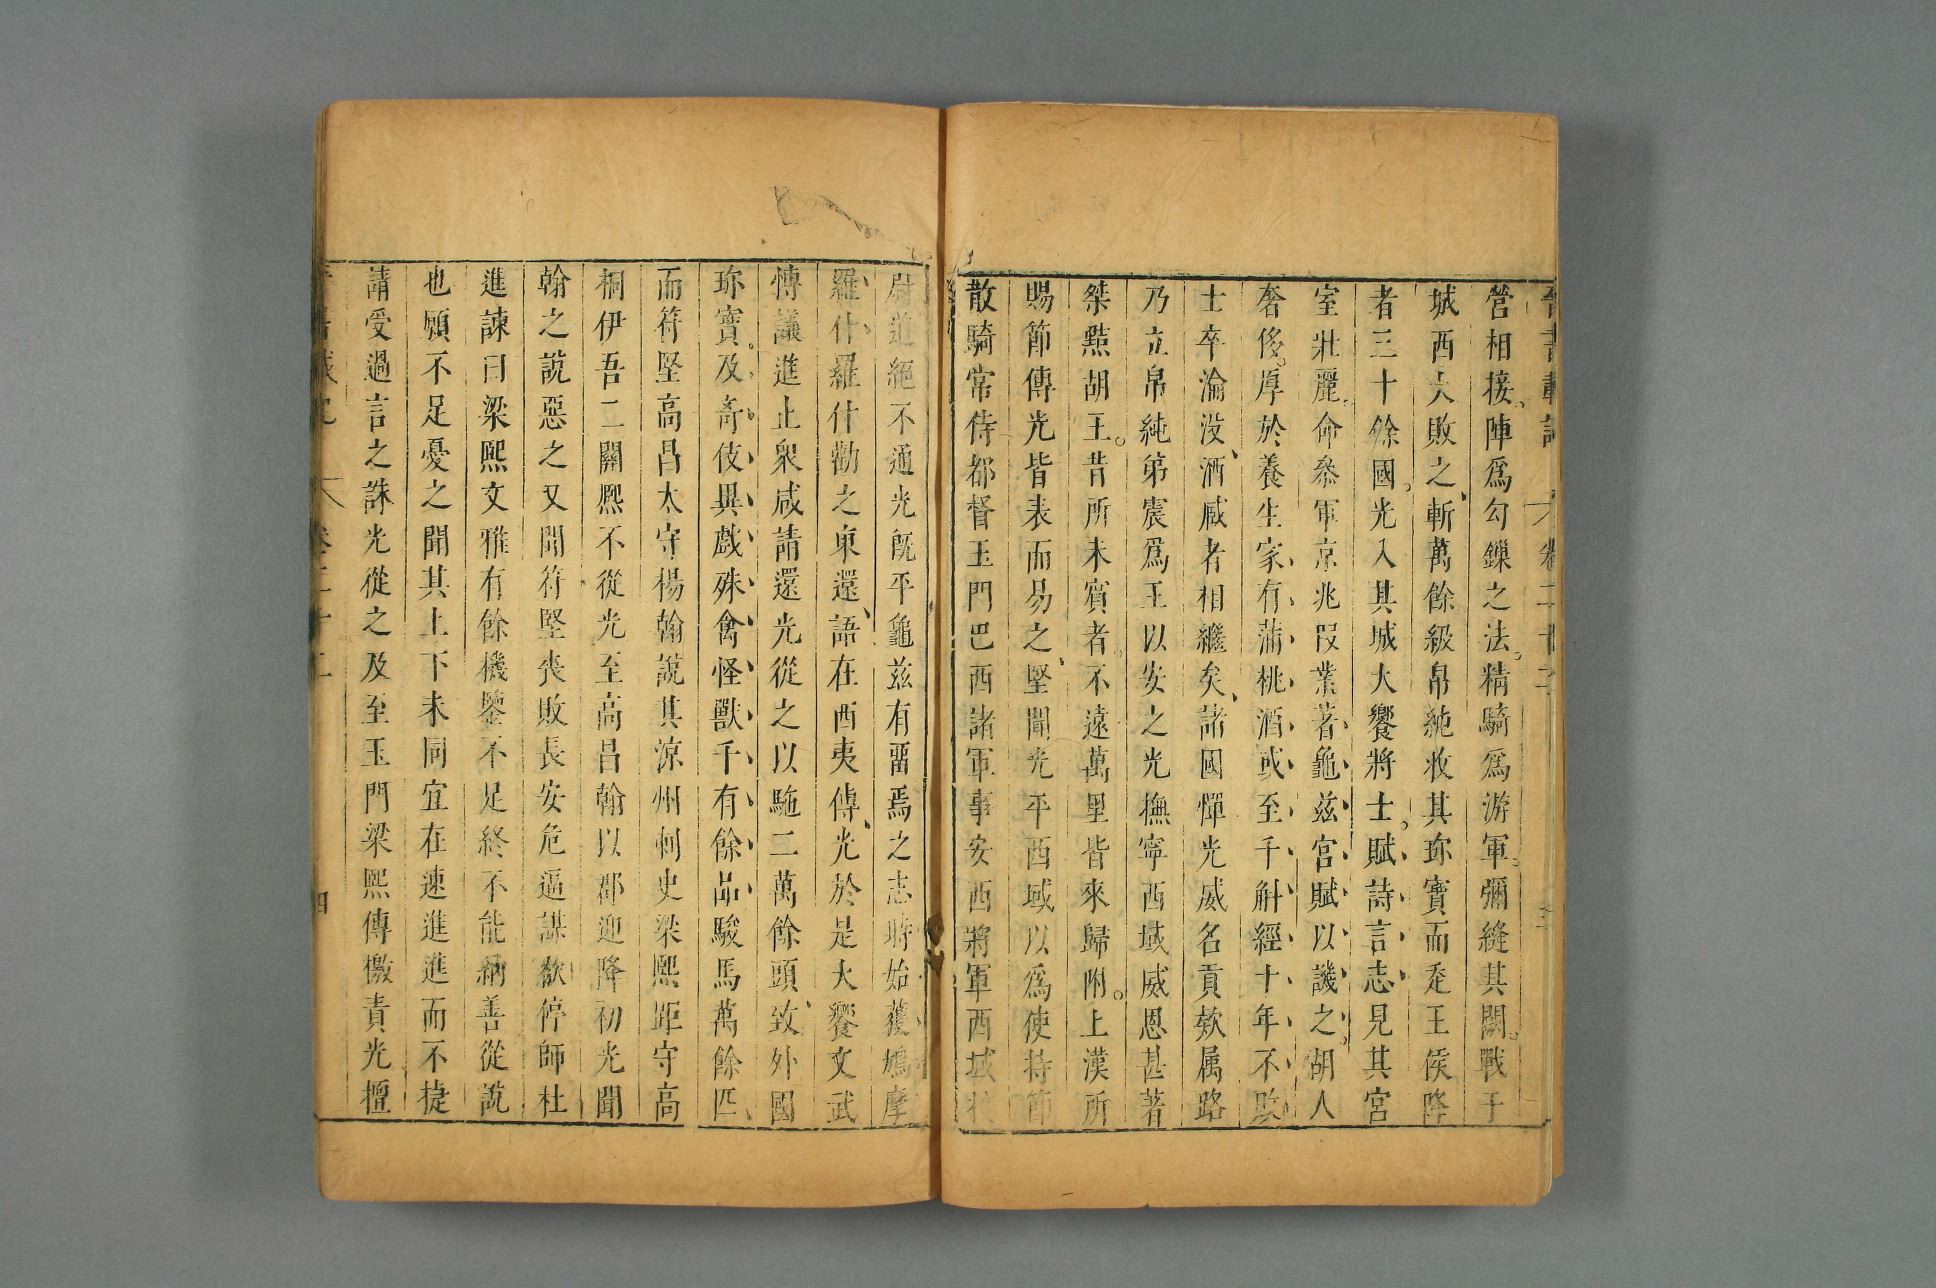 晉書載記　卷二十二
營相接。陣爲勾鏁之法。精騎爲游軍。彌縫其闕。戰于
城西大敗之、斬萬餘級帛純收其珎寶而走王侯降
者三十餘國。光入其城大饗將士。賦詩言志見其宮
室壯麗。命叅軍京兆叚業著龜兹宮賦以譏之。胡人
奢侈。厚於養生家有蒲桃酒或至千斛經十年不敗
士卒淪没、酒藏者相繼矣、諸國憚光威名貢欵属路
乃立帛純弟震爲王以安之光撫寧西域威恩甚著
桀黠胡王。昔所未賓者。不遠萬里皆來歸附。上漢所
賜節傳光皆表而易之、堅聞光平西域以爲使持節
散騎常侍都督玉門巴西諸軍事安西將軍西域校
尉道絕不通光旣平龜兹有留焉之志時始獲鳩摩
羅什羅什勸之東還、語在西夷傳、光於是大饗文武
愽議進止衆咸請還光從之以駞二萬餘頭、致外國
珎寶。及奇伎異戲殊禽怪獸千有餘品駿馬萬餘匹、
而符堅高昌太守楊翰說其涼州刺史梁熙距守高
桐伊吾二關熙不從光至高昌翰以郡迎降初光聞
翰之說惡之又聞符堅喪敗長安危逼謀欲停師杜
進諫曰梁熙文雅有餘機鑒不足終不能納善從說
也願不足憂之聞其上下未同宜在速進進而不捷
請受過言之誅光從之及至玉門梁熙傳檄責光擅
晉書載記　卷二十二　四